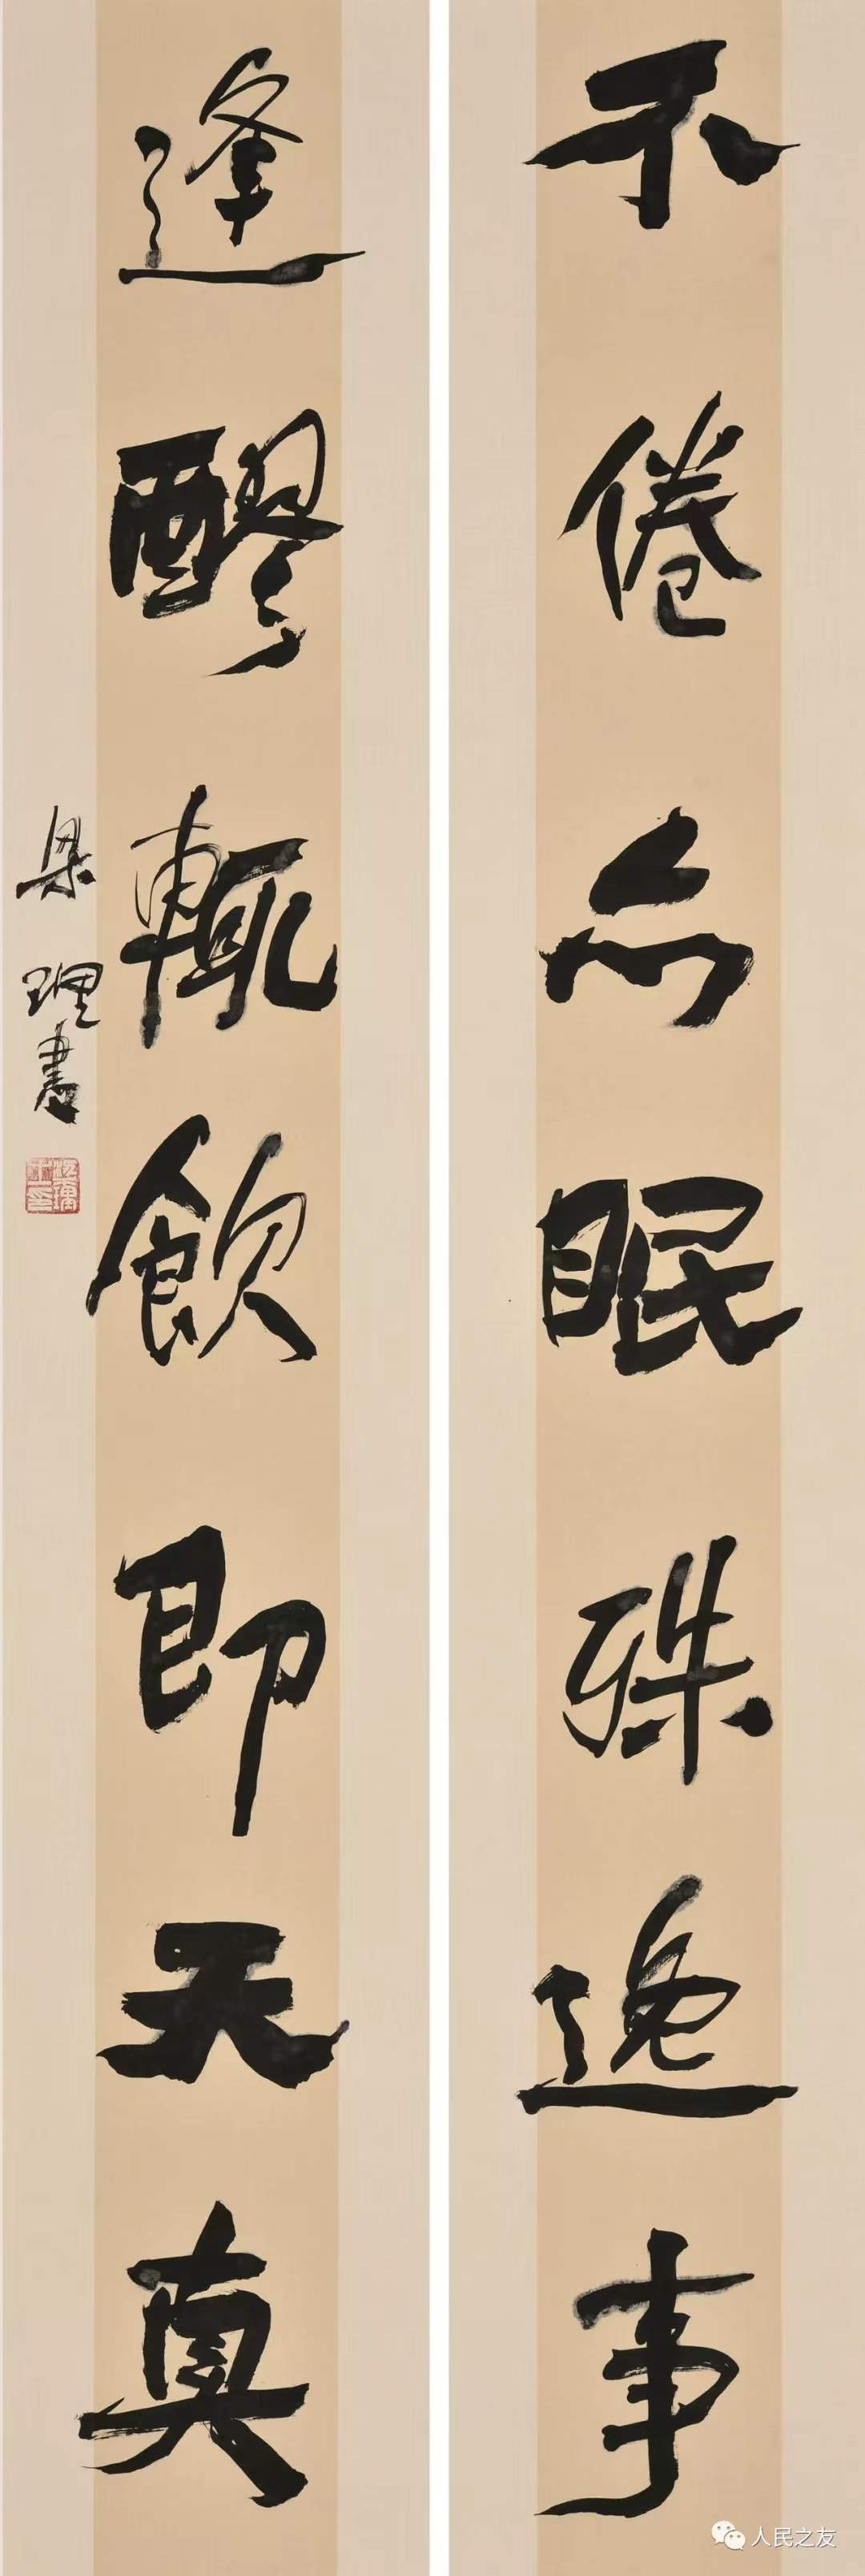 不倦亦眠殊逸事
逢醪輒飲即天真
梁理書
人民之友